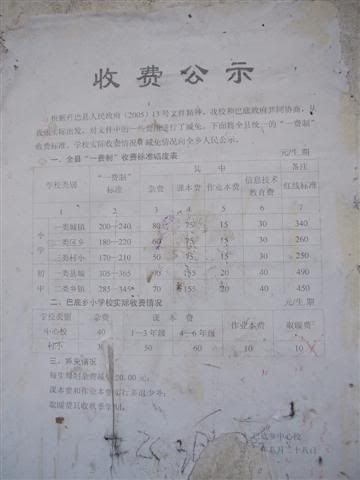 收费公示
根据丹巴县人民政府〔2005〕13号文件精神，我校和巴底政府共同协商，从
我乡实际出发，对文件中的一些费用进行了减免。下面将全县统一的“一费制”
收费标准、学校实际收费情况和减免情况向全乡人民公示。
一、全县“一费制”收费标准幅度表 元/生.期
学校类别 “一费制”标准 其中 备注
杂费 课本费 作业本费 信息技术教育费 红线标准
1 2 3 4 5 6 7
小学 一类城镇 200-240 80 75 15 30 340
二类区乡 180-220 60 75 15 30 260
三类村小 170-210 50 75 15 30 250
初中 一类县城 305-365 90 155 20 40 490
二类乡镇 285-345 70 155 20 40 450
二、巴底乡小学校实际收费情况 元/生.期
学校类别 杂费 课本费 作业本费 取暖费
1-3年级 4-6年级
中心校 40 50 60 10 10
村小
三、减免情况
每生每期杂费减免20.00元;
课本费和作业本费实行多退少补;
取暖费只收秋季学期。
巴底乡中心校